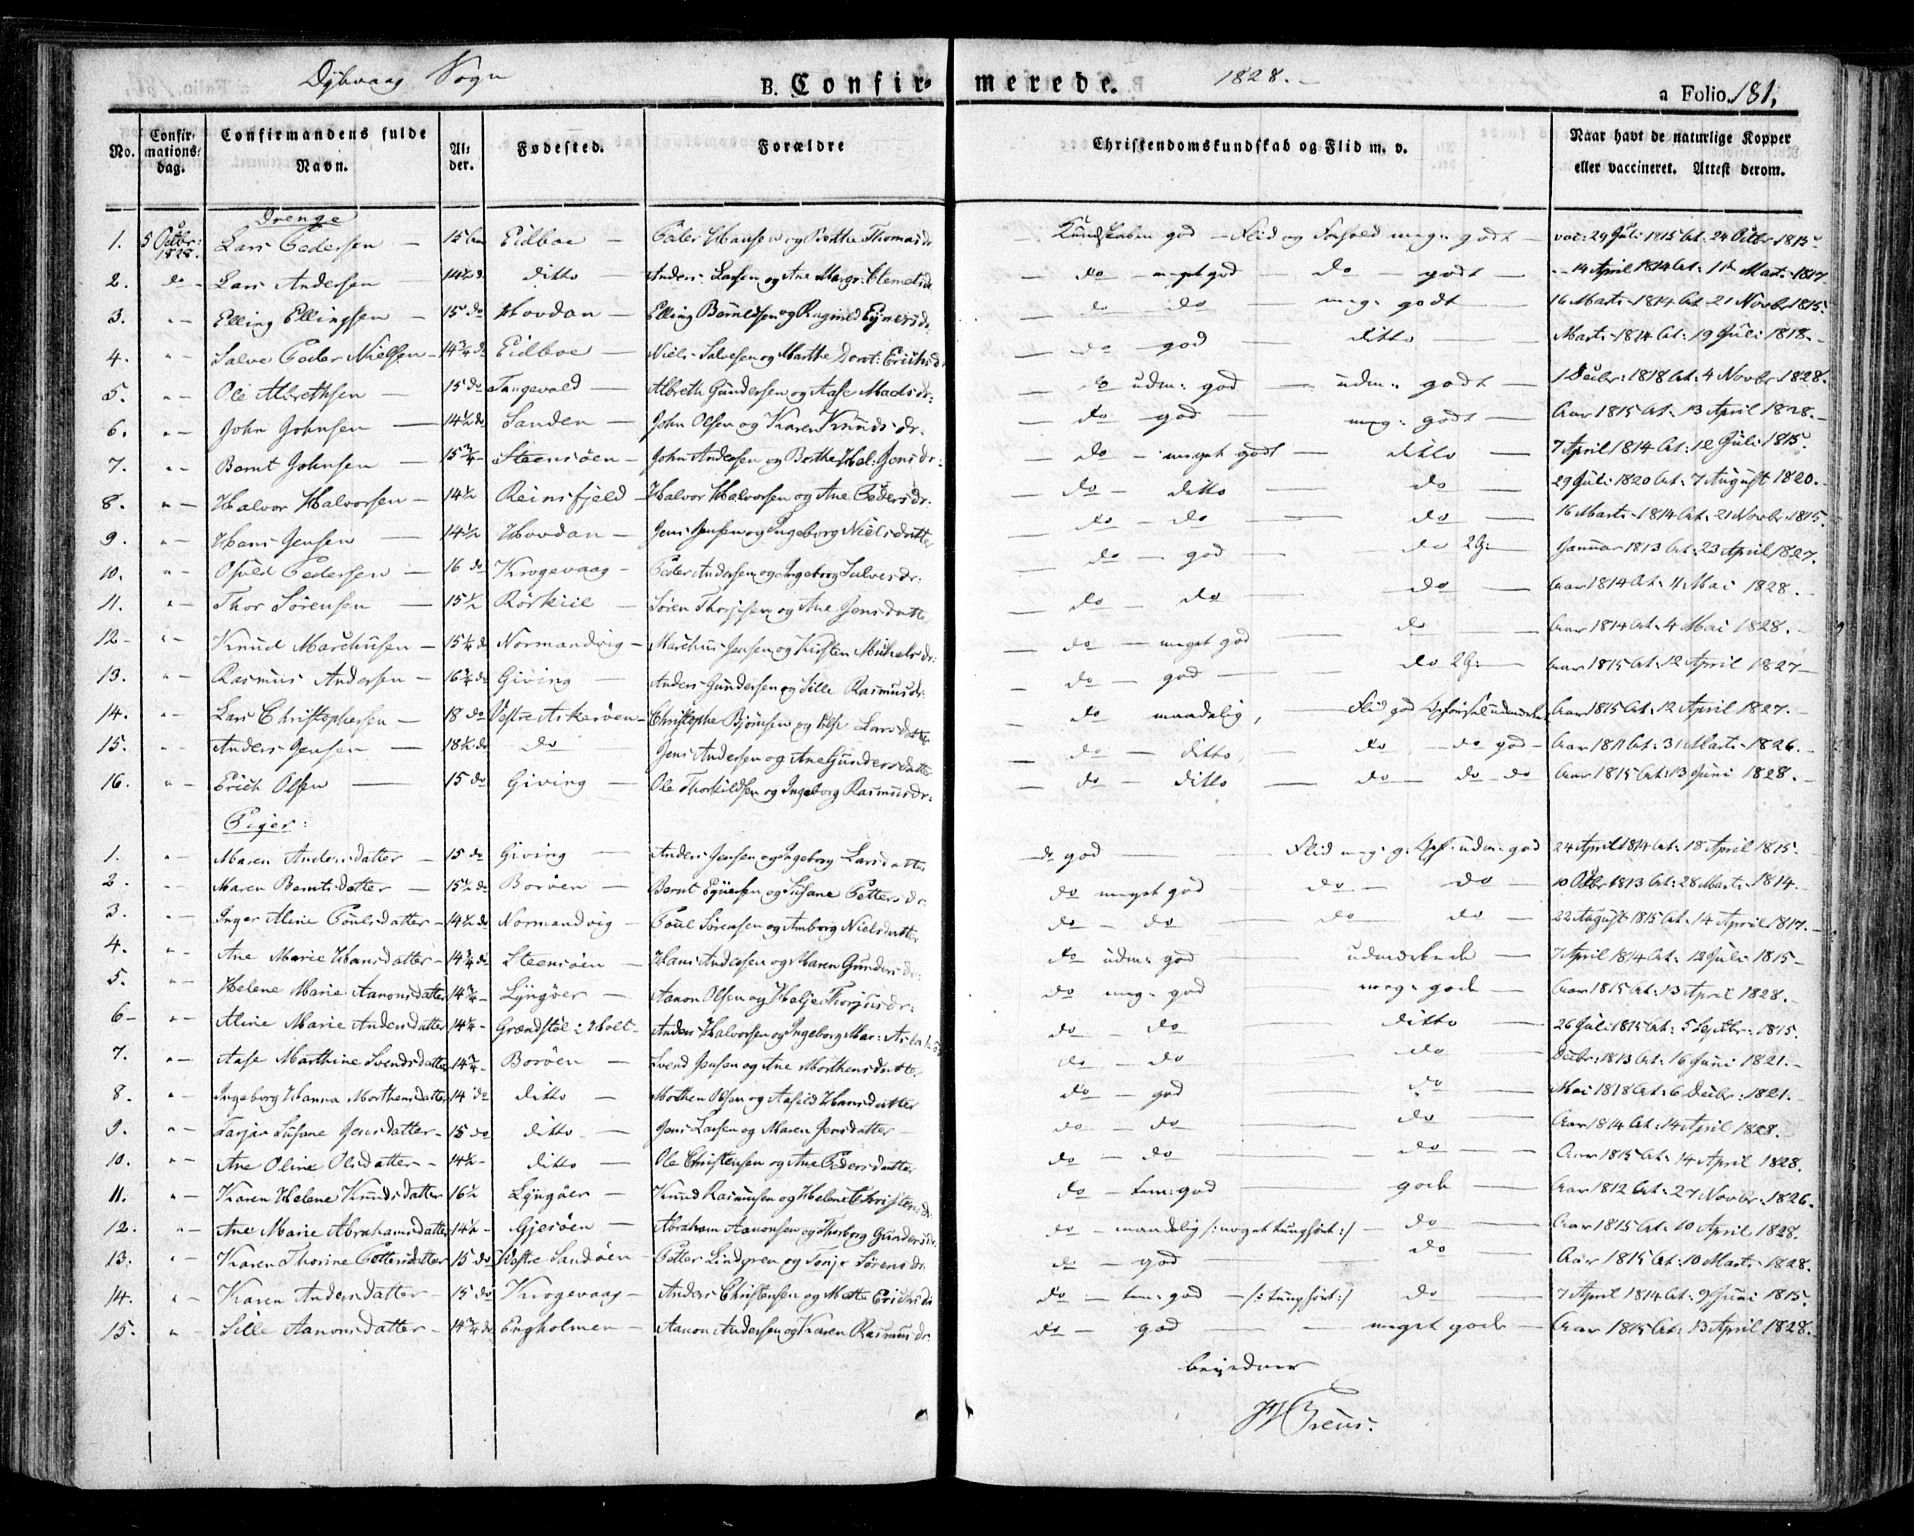 Dybvaag Sogn B. Confirmerede. 1828. a Folio 181.
No. Confirmationsdag. Confirmandens fulde Navn. Alder. Fødested. Forældre Christendomskundskab og Flid m. v. Naar havt de naturlige Kopper eller vaccineret. Attest derom.
Drenge
1. 5 Octbr: 1828. Lars Pedersen 15 Eidboe Peder Hansen og Berthe Thomasdr Kundskaben god – Flid og Forhold meg: godt vac: 29 Juli 1815 At: 24 Octbr 1815
2. do Lars Andersen 14½ d ditto Anders Larsen og Ane Margr: Clemetsdr do meget god do godt 14 April 1814 At: Mart: 1817
3. " Elling Ellingsen 15 do Hovdan Elling Berntdsen og Ragnild Ejversd. do do meg: godt 16 Marts 1814 At: 21 Novbr 1815.
4. " Salve Peder Nielsen 14¾ do Eidboe Niels Salvesen og Marthe Dorot: Erichsdr do god ditto Marts 1814 At: 19 Juli 1818.
5. " Ole Albrethsen 15 do Tangevald Albreth Gundersen og Aase Madsdr: do udm: god udm: godt 1 Decbr: 1818 At: 4 Novbr 1828.
6. " John Johnsen 14½ do Sanden John Olsen og Karen Knudsdr. do god meg: godt Aar 1815 At: 13 April 1828.
7. " Bernt Johnsen 15¾ Steensøen John Andersen og Berthe Hel: Jensdr: do meget godt ditto 7 April 1814 At: 12 Juli 1815
8. " Halvor Halvorsen 14½ Reinsfjeld Halvor Halvorsen og Ane Pedersdr. do ditto do 29 Juli 1820 At: 7 August 1820.
9. " Hans Jensen 14½ Hovdan Jens Jensen og Ingeborg Nielsdatter do do do 16 Marts 1814 At: 21 Novbr 1815.
10. " Osuld Pedersen 16 do Krogevaag Peder Andersen og Ingeborg Salvesdr: do god do 2G: Januar 1813 At: 23 April 1827.
11. " Thor Sørensen 15½ Rørkiil Søren Thorjusen og Ane Jensdatter do do do Aar 1814 At: 4 Mai 1828.
12. " Knud Marchusen 15¼ do Normandvig Marchus Jensen og Kirsten Michelsdr: do meget god do Aar 1814 At: 4 Mai 1828.
13. " Rasmus Andersen 16¾ do Giving Anders Gundersen og Sille Rasmusdr. do god do 2G: Aar 1815 At: 12 April 1827
14. " Lars Christophersen 18 do Vestre Askerøen Christopher Bjørnsen og Else Larsdatter do maadelig, Flid god Opførsel udmærket Aar 1815 At: 12 April 1827.
15. " Anders Jensen 18½ do do Jens Andersen og Ane Gundersdatter do ditto, do do god Aar 1811 At: 31 Marts 1826.
16. " Erich Olsen 15 do Giving Ole Thorkildsen og Ingeborg Rasmusdr: do ditto do do do Aar 1815 At: 13 Juni 1828.
Piger:
1. " Maren Andersdatter 15 do Giving Anders Jensen og Ingeborg Larsdatter do god Flid meg: g: Opf: udm: god 24 April 1814 At: 18 April 1815.
2. " Maren Berntsdatter 15½ do Borøen Bernt Syversen og Susane Pettersdr. do meget god do do 10 Octbr 1813 At: 28 Marts 1814.
3. " Inger Aline Poulsdatter 14½ do Normandvig Poul Sørensen og Amborg Nielsdatter do do do do 22 August 1815 At: 14 April 1817.
4. " Ane Marie Hansdatter 14¾ do Steensøen Hans Andersen og Maren Gundersdr: do udm: god udmærkede 7 April 1814 At: 12 Juli 1815
5. " Helene Marie Aanonsdatter 14¾ Lyngøer Aanon Olsen og Helje Thorjusdr: do meg: god meg: gode Aar 1815 At: 13 April 1828.
6 " Aline Marie Andersdatter 14¼ Grændstøl i Holt Anders Halvorsen og Ingeborg Mar: do do ditto 26 Juli 1815 At: 5 Septbr: 1815.
7. " Aase Marthine Svendsdatter 14¾ Borøen Svend Jensen og Ane Morthensdatter do do do Decbr: 1813 At: 16 Juni 1821.
8. " Ingeborg Hanna Morthensdatter 14 do ditto Morthen Olsen og Aasild Hansdatter do god do Mai 1818 At: 6 Decbr: 1821.
9. " Tarjar Susane Jensdatter 15 do ditto Jens Larsen og Maren Jensdatter do do do Aar 1814 At: 14 April 1828.
10. " Ane Oline Olsdatter 14½ ditto Ole Christensen og Ane Pedersdatter do do do Aar 1815 At: 14 April 1828.
11. " Karen Helene Knudsdatter 16½ Lyngøer Knud Rasmusen og Helene Christensd. do tem: god gode Aar 1812 At: 27 Novbr. 1826.
12. " Ane Marie Abrahamsdatter 14½ Gjesøen Abraham Aanonsen og Thorborg Gundersdr. do maadelig /: noget tunghørt :/ do Aar 1815 At: 10 April 1828.
13. " Karen Thorine Pettersdatter 15 do Westre Sandøen Petter Lindgren og Tonje Sørensdr. do god do Aar 1815 At: 10 Marts 1828.
14. " Karen Andersdatter 15 do Krogevaag Anders Christensen og Mette Erichsdr do tem: god /: tunghørt :/ do 7 April 1814 At: 9 Juni 1815.
15. " Sille Aanonsdatter 14¾ do Engholmen Aanon Andersen og Karen Rasmusdr. do god meget gode Aar 1815 At: 13 April 1828.
bevidner